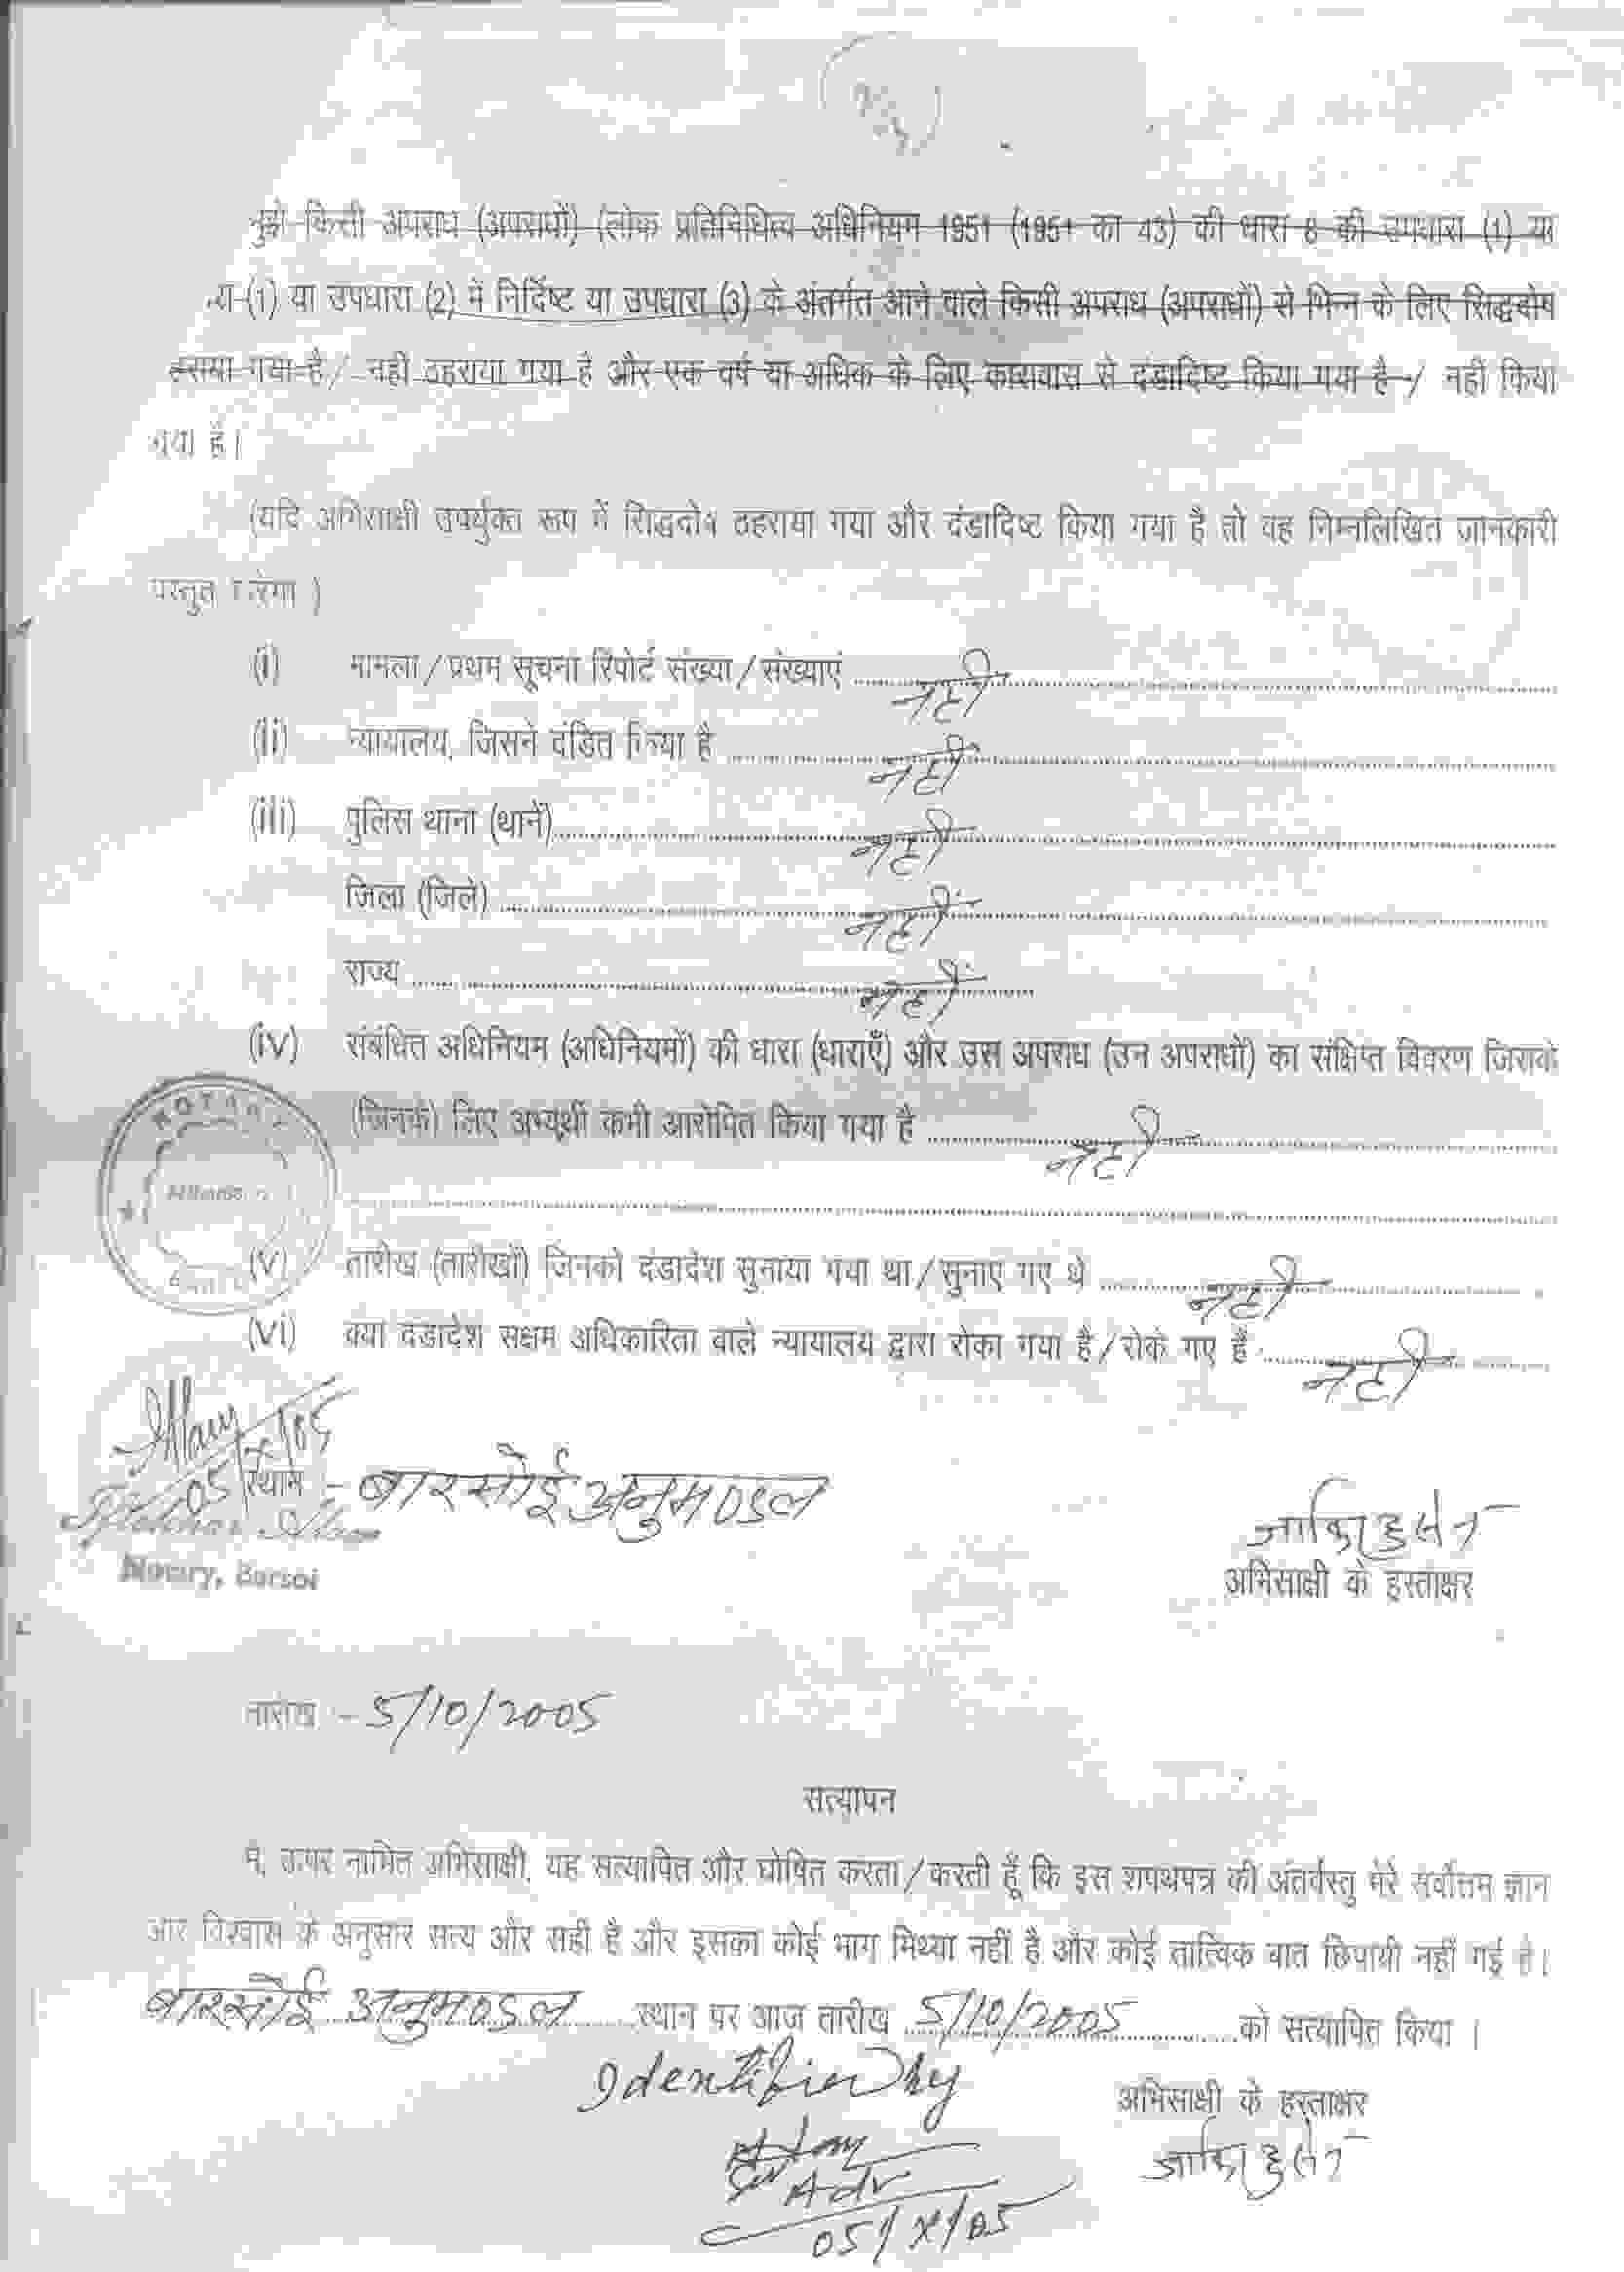 किसी अपराध (अपराधों) (लोक प्रतिनिधित्व अधिनियम 1951 (1951 का 43) की धारा 8 की उपधारा (1) या
(1) या उपधारा (2) में निर्दिष्ट या उपधारा (3) के अंतर्गत आने वाले किसी अपराध (अपराधों) से भिन्न के लिए सिद्धदोष
गया है / नहीं ठहराया गया है और एक वर्ष या अधिक के लिए कारावास से दंडादिष्ट किया गया है / नहीं किया
गया है।
(यदि अभिसाक्षी उपर्युक्त रूप में सिद्धदोष ठहराया गया और दंडादिष्ट किया गया है तो वह निम्नलिखित जानकारी
प्रस्तुत करेगा )
(i) मामला / प्रथम सूचना रिपोर्ट संख्या / संख्याएं नहीं
(ii) न्यायालय, जिसने दंडित किया है नहीं
(iii) पुलिस थाना (थानें) नहीं
जिला (जिले) नहीं
राज्य नहीं
(iv) संबंधित अधिनियम (अधिनियमों) की धारा (धाराएँ) और उस अपराध (उन अपराधों) का संक्षिप्त विवरण जिसके
(जिनके) लिए अभ्यर्थी कभी आरोपित किया गया है नहीं
NOTARY
(v) तारीख (तारीखों) जिनको दंडादेश सुनाया गया था / सुनाए गए थे नहीं
(vi) क्या दंडादेश सक्षम अधिकारिता वाले न्यायालय द्वारा रोका गया है / रोके गए हैं नहीं
05/X/05
स्थान :- बारसोई अनुमण्डल
Notary, Barsoi
अभिसाक्षी के हस्ताक्षर
तारीख :- 5/10/2005
सत्यापन
मैं, ऊपर नामित अभिसाक्षी, यह सत्यापित और घोषित करता / करती हूँ कि इस शपथपत्र की अंतर्वस्तु मेरे सर्वोत्तम ज्ञान
और विश्वास के अनुसार सत्य और सही है और इसका कोई भाग मिथ्या नहीं है और कोई तात्विक बात छिपायी नहीं गई है।
बारसोई अनुमण्डल स्थान पर आज तारीख 5/10/2005 को सत्यापित किया ।
Identifier by
अभिसाक्षी के हस्ताक्षर
Adv
05/X/05